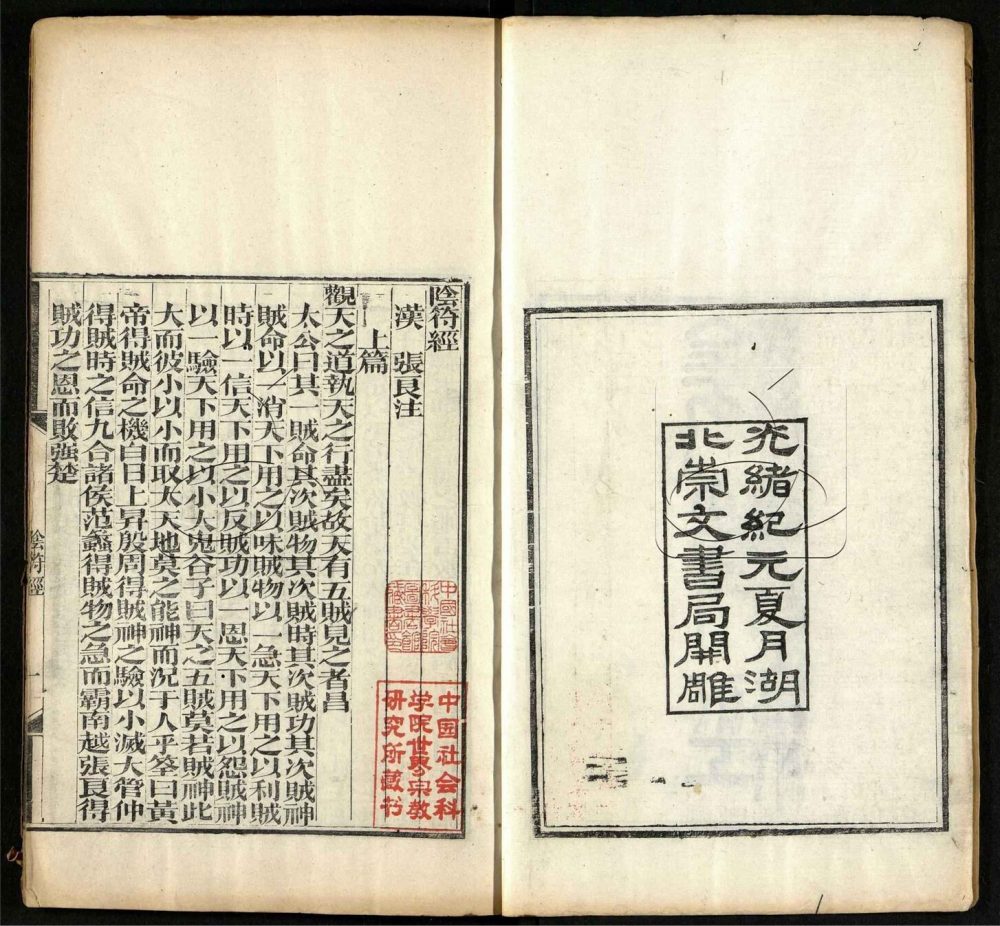 光緒紀元夏月湖
北崇文書局開雕
陰符經
漢 張良注
上篇
觀天之道執天之行盡矣故天有五賊見之者昌
太公曰其一賊命其次賊物其次賊時其次賊功其次賊神
賊命以一消天下用之以味賊物以一急天下用之以利賊
時以一信天下用之以反賊功以一恩天下用之以怨賊神
以一驗天下用之以小大鬼谷子曰天之五賊莫若賊神此
大而彼小以小而取大天地莫之能神而況于人乎筌曰黃
帝得賊命之機白日上昇殷周得賊神之驗以小滅大管仲
得賊時之信九合諸侯范蠡得賊物之急而霸南越張良得
賊功之恩而敗強楚
陰符經
一
中國社會
科學院
圖書館
藏書印
中国社会科
学院世界宗教
研究所藏书